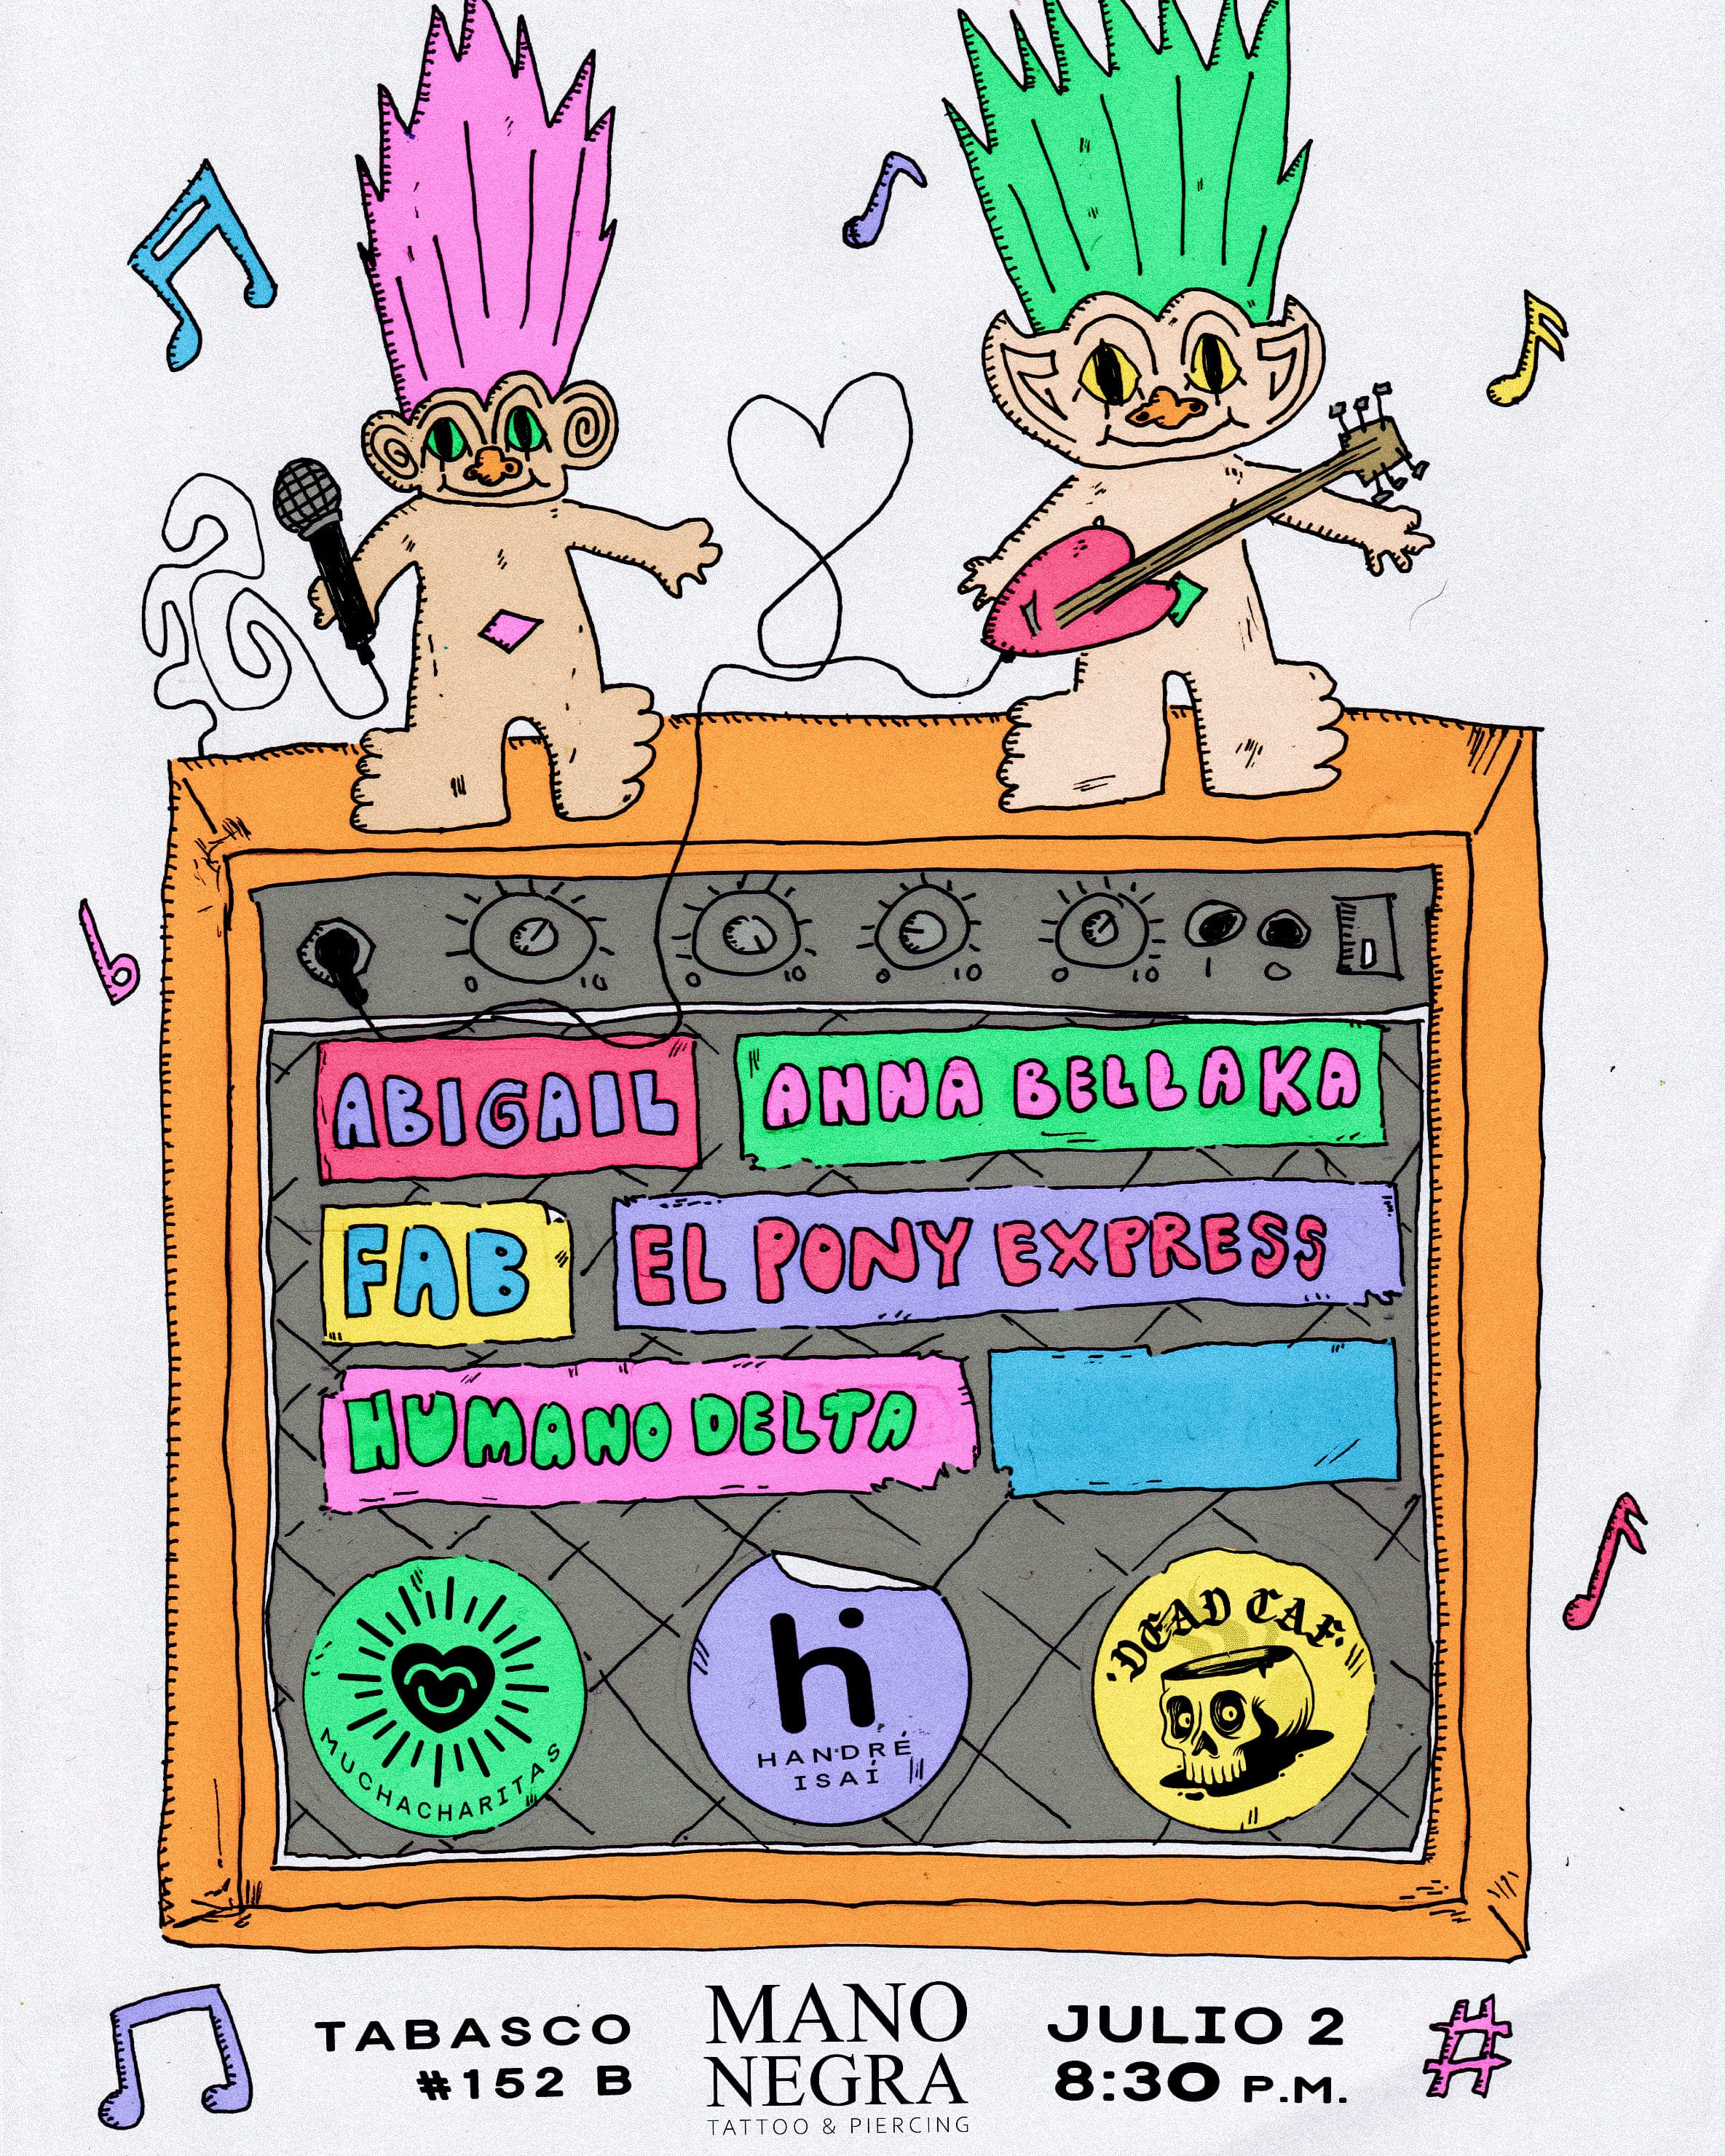 0 10
0 10
0 10
0 10
1 0
ABIGAIL
ANNA BELLAKA
FAB
EL PONY EXPRESS
HUMANO DELTA
MUCHACHARITAS
hi
HANDRÉ
ISAÍ
·DEAD CAF·
TABASCO
#152 B
MANO
NEGRA
TATTOO & PIERCING
JULIO 2
8:30 P.M.